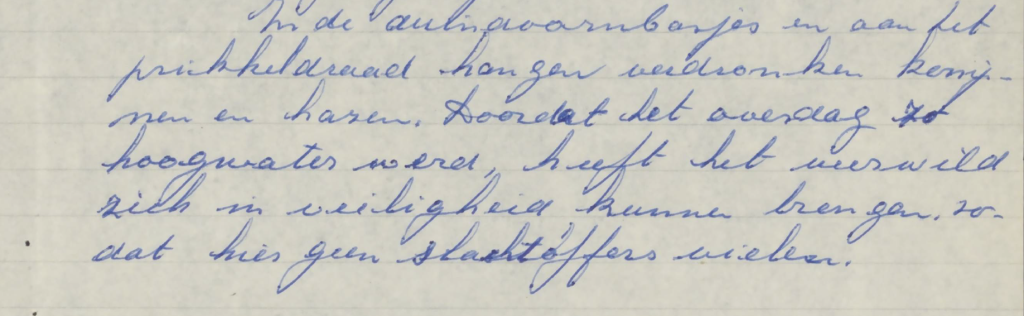 In de duindoornbosjes en aan het
prikkeldraad hangen verdronken konij-
nen en hazen. Doordat het overdag zo
hoogwater werd, heeft het veerwild
zich in veiligheid kunnen brengen, zo-
dat hier geen slachtoffers vielen.